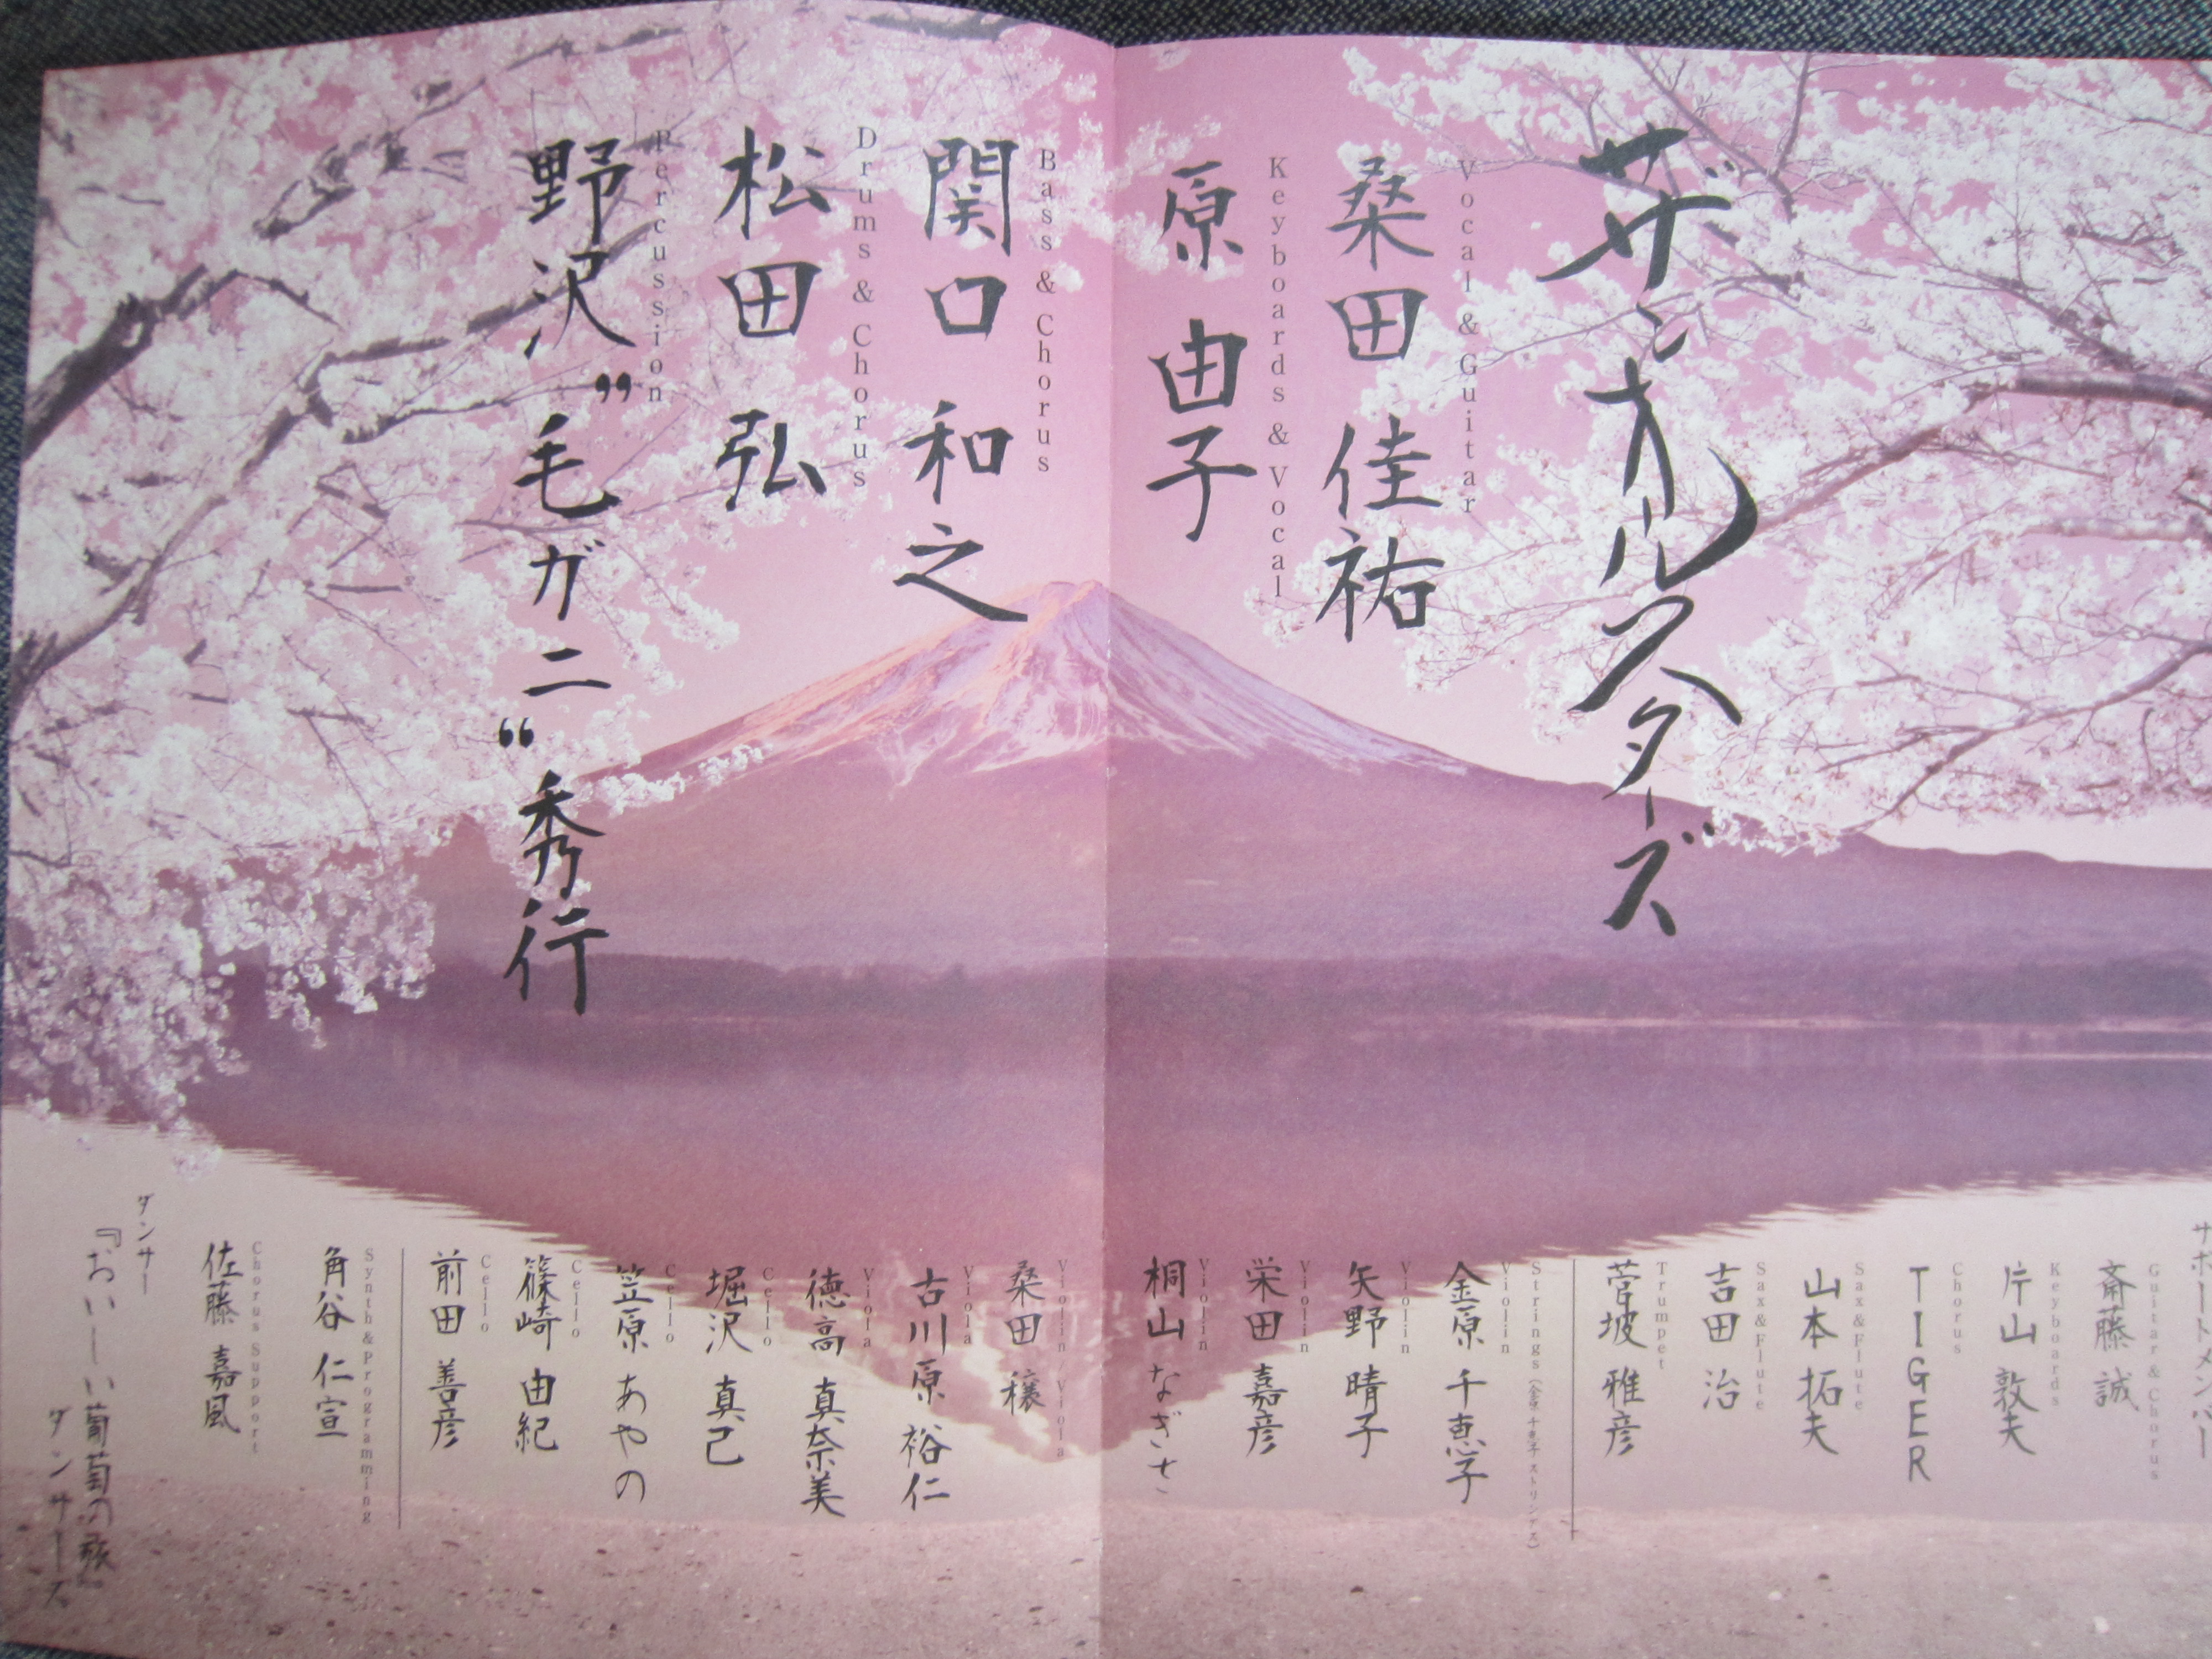 サザンオールスターズ
Vocal & Guitar
桑田 佳祐
Keyboards & Vocal
原 由子
Bass & Chorus
関口 和之
Drums & Chorus
松田 弘
Percussion
野沢"毛ガニ"秀行
サポートメンバー
Guitar & Chorus
斎藤 誠
Keyboards
片山 敦夫
Chorus
TIGER
Sax&Flute
山本 拓夫
Sax&Flute
吉田 治
Trumpet
菅坡 雅彦
Strings(金原千恵子ストリングス)
Violin
金原 千恵子
Violin
矢野 晴子
Violin
栄田 嘉彦
Violin
桐山 なぎさ
Violin/Viola
桑田 穣
Viola
古川原 裕仁
Viola
徳高 真奈美
Cello
堀沢 真己
Cello
笠原 あやの
Cello
篠崎 由紀
Cello
前田 善彦
Synth&Programming
角谷 仁宣
Chorus Support
佐藤 嘉風
ダンサー
『おいしい葡萄の旅』
ダンサーズ